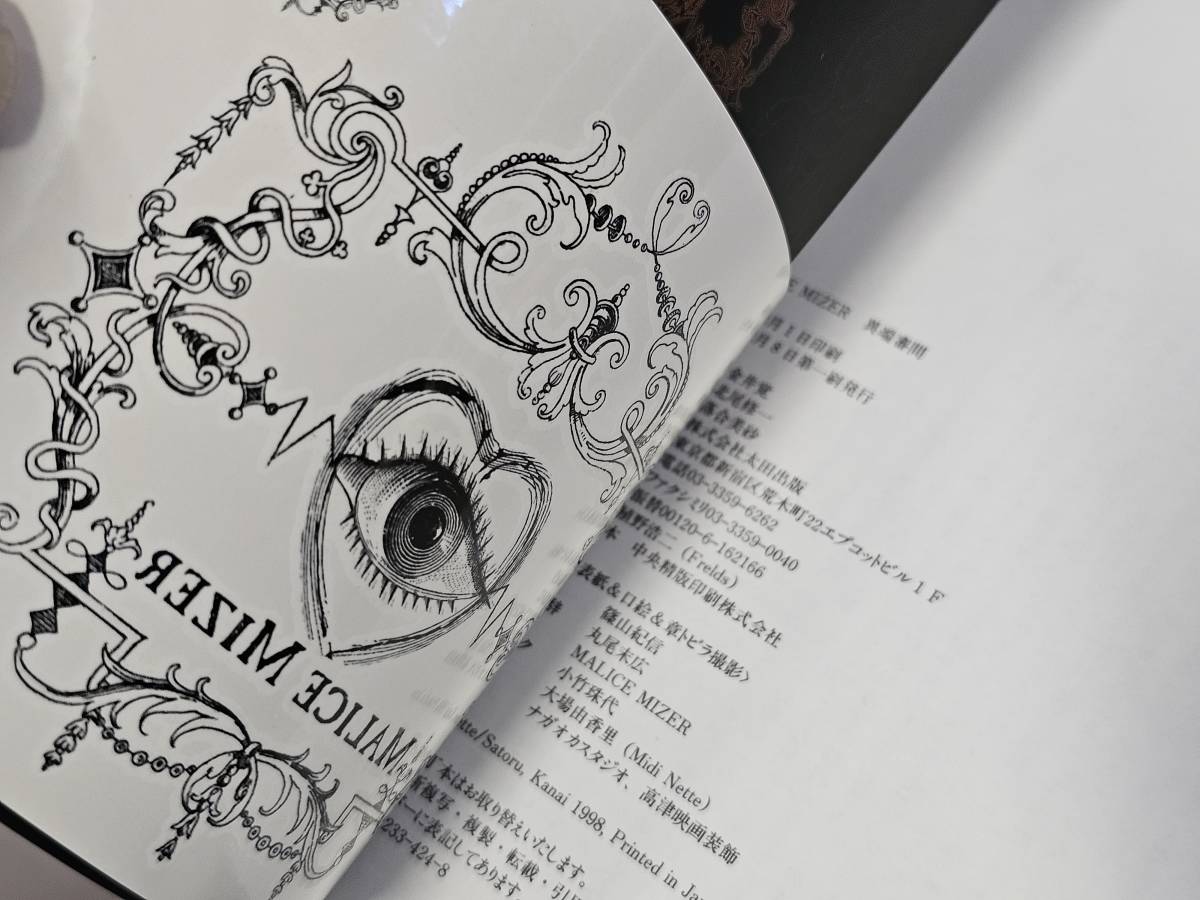 MALICE MIZER
E MIZER 異端審問
月1日印刷
月8日第一刷発行
金井覚
北尾修一
落合美砂
株式会社太田出版
東京都新宿区荒木町22エプコットビル1F
電話03-3359-6262
ファクシミリ03-3359-0040
振替00120-6-162166
植野浩二(Frelds)
本 中央精版印刷株式会社
表紙&口絵&章トビラ撮影〉
辞 篠山紀信
丸尾末広
ク MALICE MIZER
小竹珠代
大場由香里(Midi Nette)
ナガオカスタジオ、高津映画装飾
ette/Satoru, Kanai 1998, Printed in Jap
丁本はお取り替えいたします。
断複写・複製・転載・引用
ーに表記してあります。
233-424-8